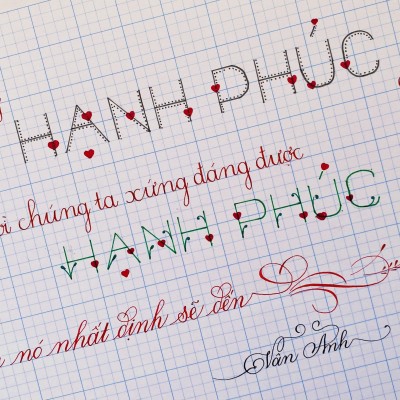 HẠNH PHÚC
chúng ta xứng đáng được
HẠNH PHÚC
nó nhất định sẽ đến
Vân Anh